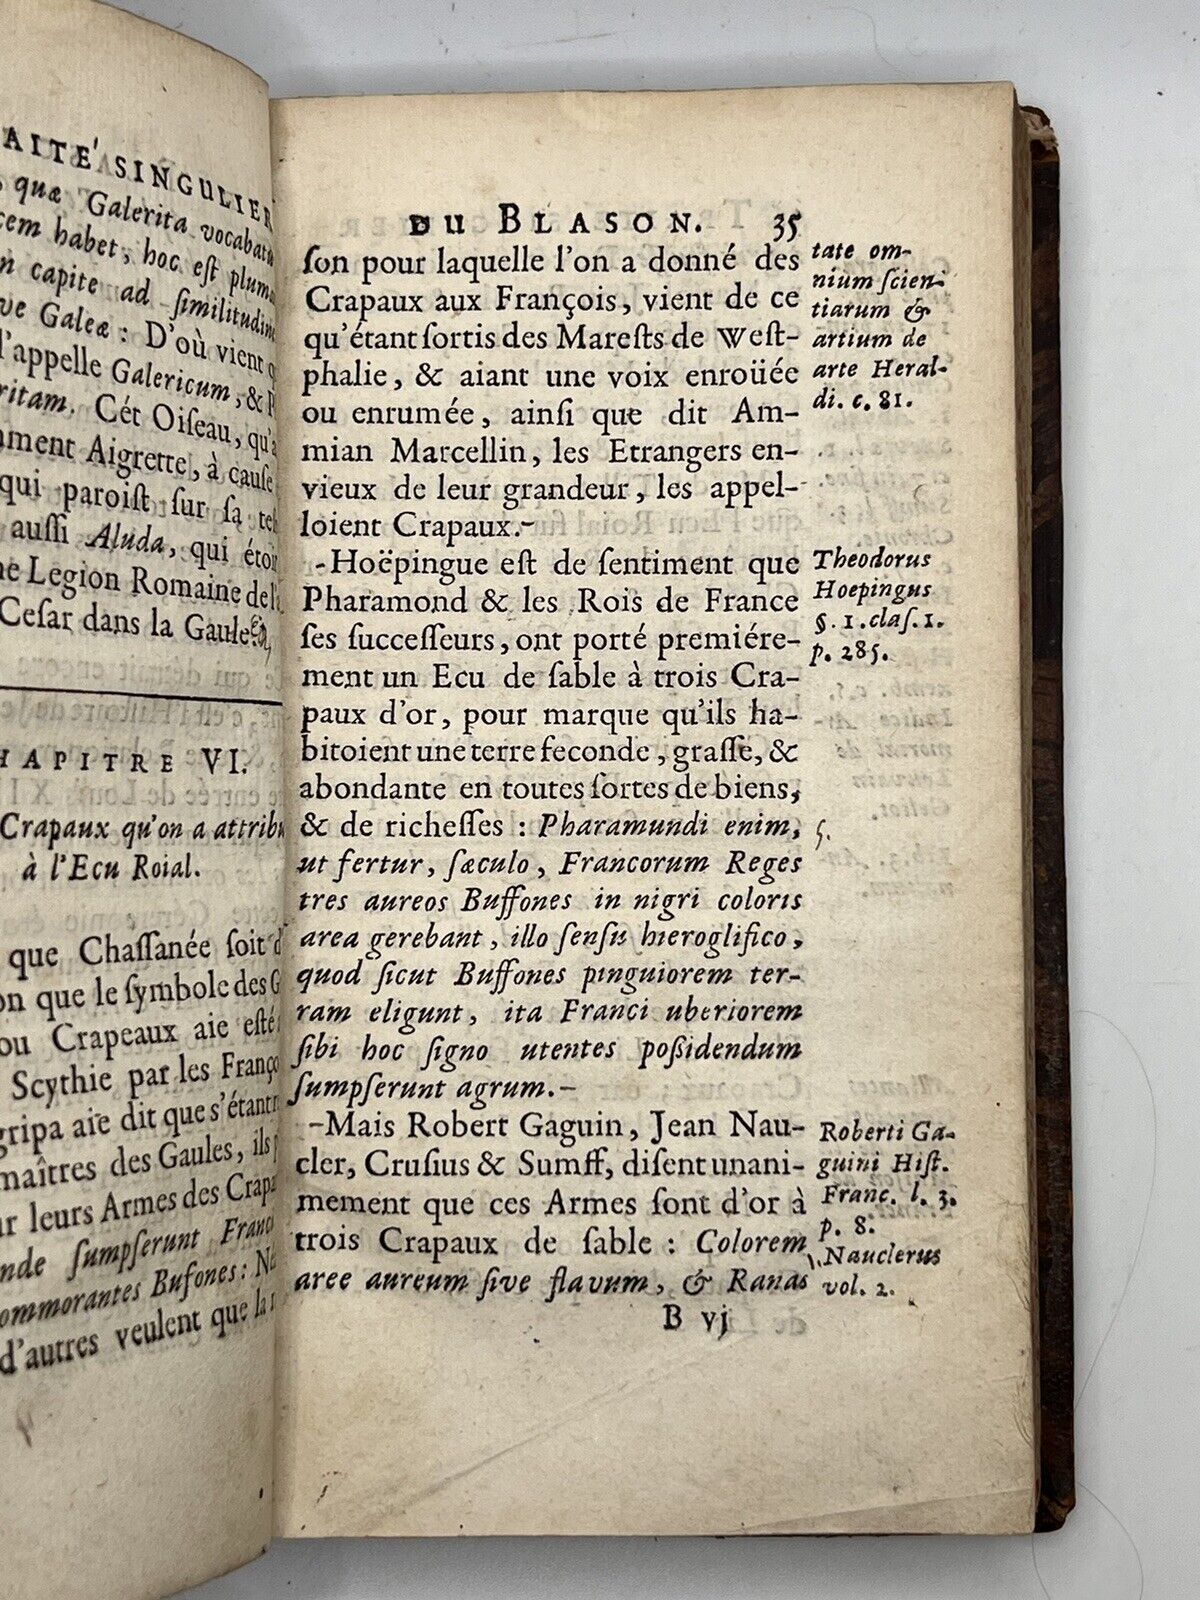 AITÉ SINGULIER
quæ Galerita vocabatu
cem habet, hoc eſt pluma
n capite ad ſimilitudine
ve Galeæ : D'où vient q
l'appelle Galericum, & P
ritam. Cét Oiſeau, qu'a
mment Aigrette, à cauſe
qui paroiſt ſur ſa teſ
auſſi Aluda, qui étoi
ne Legion Romaine de l'
Ceſar dans la Gaule.
HAPITRE VI.
Crapaux qu'on a attribu
à l'Ecu Roial.
que Chaſſanée ſoit d
on que le ſymbole des G
ou Crapeaux aie eſté
Scythie par les Franço
gripa aie dit que s'étant
maîtres des Gaules, ils p
ur leurs Armes des Crapa
nde ſumpſerunt Franci
ommorantes Bufones : Ne
d'autres veulent que la
DU BLASON. 35
ſon pour laquelle l'on a donné des
Crapaux aux François, vient de ce
qu'étant ſortis des Mareſts de Weſt-
phalie, & aiant une voix enroüée
ou enrumée, ainſi que dit Am-
mian Marcellin, les Etrangers en-
vieux de leur grandeur, les appel-
loient Crapaux.
Hoëpingue eſt de ſentiment que
Pharamond & les Rois de France
ſes ſucceſſeurs, ont porté premiére-
ment un Ecu de ſable à trois Cra-
paux d'or, pour marque qu'ils ha-
bitoient une terre feconde, graſſe, &
abondante en toutes ſortes de biens,
& de richeſſes : Pharamundi enim,
ut fertur, ſæculo, Francorum Reges
tres aureos Buffones in nigri coloris
area gerebant, illo ſenſu hieroglifico,
quod ſicut Buffones pinguiorem ter-
ram eligunt, ita Franci uberiorem
ſibi hoc ſigno utentes poſſidendum
ſumpſerunt agrum.
Mais Robert Gaguin, Jean Nau-
cler, Cruſius & Sumff, diſent unani-
mement que ces Armes ſont d'or à
trois Crapaux de ſable : Colorem
aree aureum ſive flavum, & Ranas
B vj
tate om-
nium ſcien-
tiarum &
artium de
arte Heral-
di. c. 81.
Theodorus
Hoepingus
§. 1. claſ. 1.
p. 285.
Roberti Ga-
guini Hiſt.
Franc. l. 3.
p. 8.
Nauclerus
vol. 2.